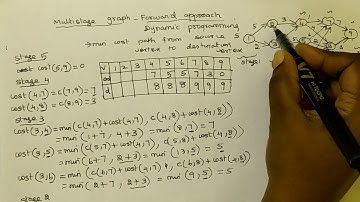 Multistage graph - Forward approach
Dynamic programming
→ min cost path from source S
vertex to destination
vertex
stage 5
cost(5,9) = 0
stage 4
cost(4,7) = c(7,9) = 7
cost(4,8) = c(8,9) = 3
V 1 2 3 4 5 6 7 8 9
7 5 5 7 3 0
d 8 8 8 9 9 9
stage 3
cost(3,4) = min(c(4,7)+cost(4,7), c(4,8)+cost(4,8))
= min(1+7, 4+3) = min(8,7) = 7
cost(3,5) = min(c(5,7)+cost(4,7), c(5,8)+cost(4,8))
= min(6+7, 2+3) = min(13,5) = 5
cost(3,6) = min(c(6,7)+cost(4,7), c(6,8)+cost(4,8))
= min(2+7, 2+3) = min(9,5) = 5
stage 2
V7